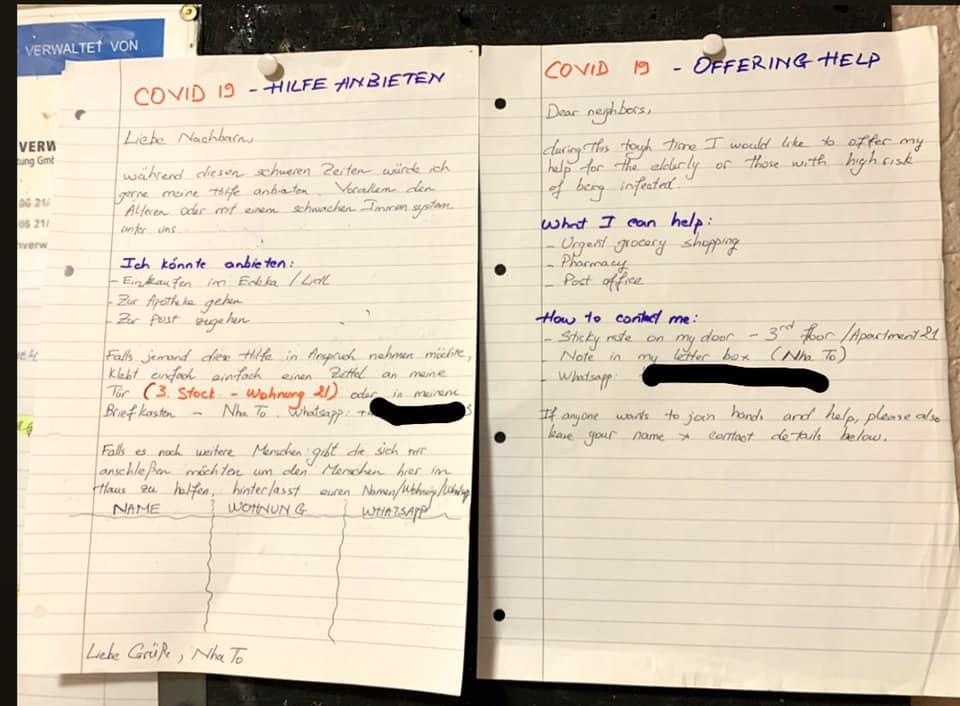 VERWALTET VON
VERW
ung Gmb
06 21/
06 21/
verw
COVID 19 - HILFE ANBIETEN
Liebe Nachbarn,
während diesen schweren Zeiten würde ich
gerne meine Hilfe anbieten. Vorallem den
Älteren oder mit einem schwachen Immunsystem
unter uns.
Ich könnte anbieten:
- Einkaufen im Edeka / Lidl
- Zur Apotheke gehen
- Zur Post zugehen
Falls jemand diese Hilfe in Anspruch nehmen möchte,
klebt einfach einfach einen Zettel an meine
Tür (3. Stock - Wohnung 21) oder in meinem
Briefkasten - Nha To. Whatsapp: +
Falls es noch weitere Menschen gibt die sich mir
anschließen möchten um den Menschen hier im
Haus zu helfen, hinterlasst euren Namen/Wohnung/Whatsapp
NAME WOHNUNG WHATSAPP
Liebe Grüße, Nha To
COVID 19 - OFFERING HELP
Dear neighbors,
during this tough time I would like to offer my
help for the elderly or those with high risk
of being infected.
What I can help:
- Urgent grocery shopping
- Pharmacy
- Post office
How to contact me:
- Sticky note on my door - 3rd floor /Apartment 21
- Note in my letter box (Nha To)
- Whatsapp:
If anyone wants to join hands and help, please also
leave your name + contact details below.